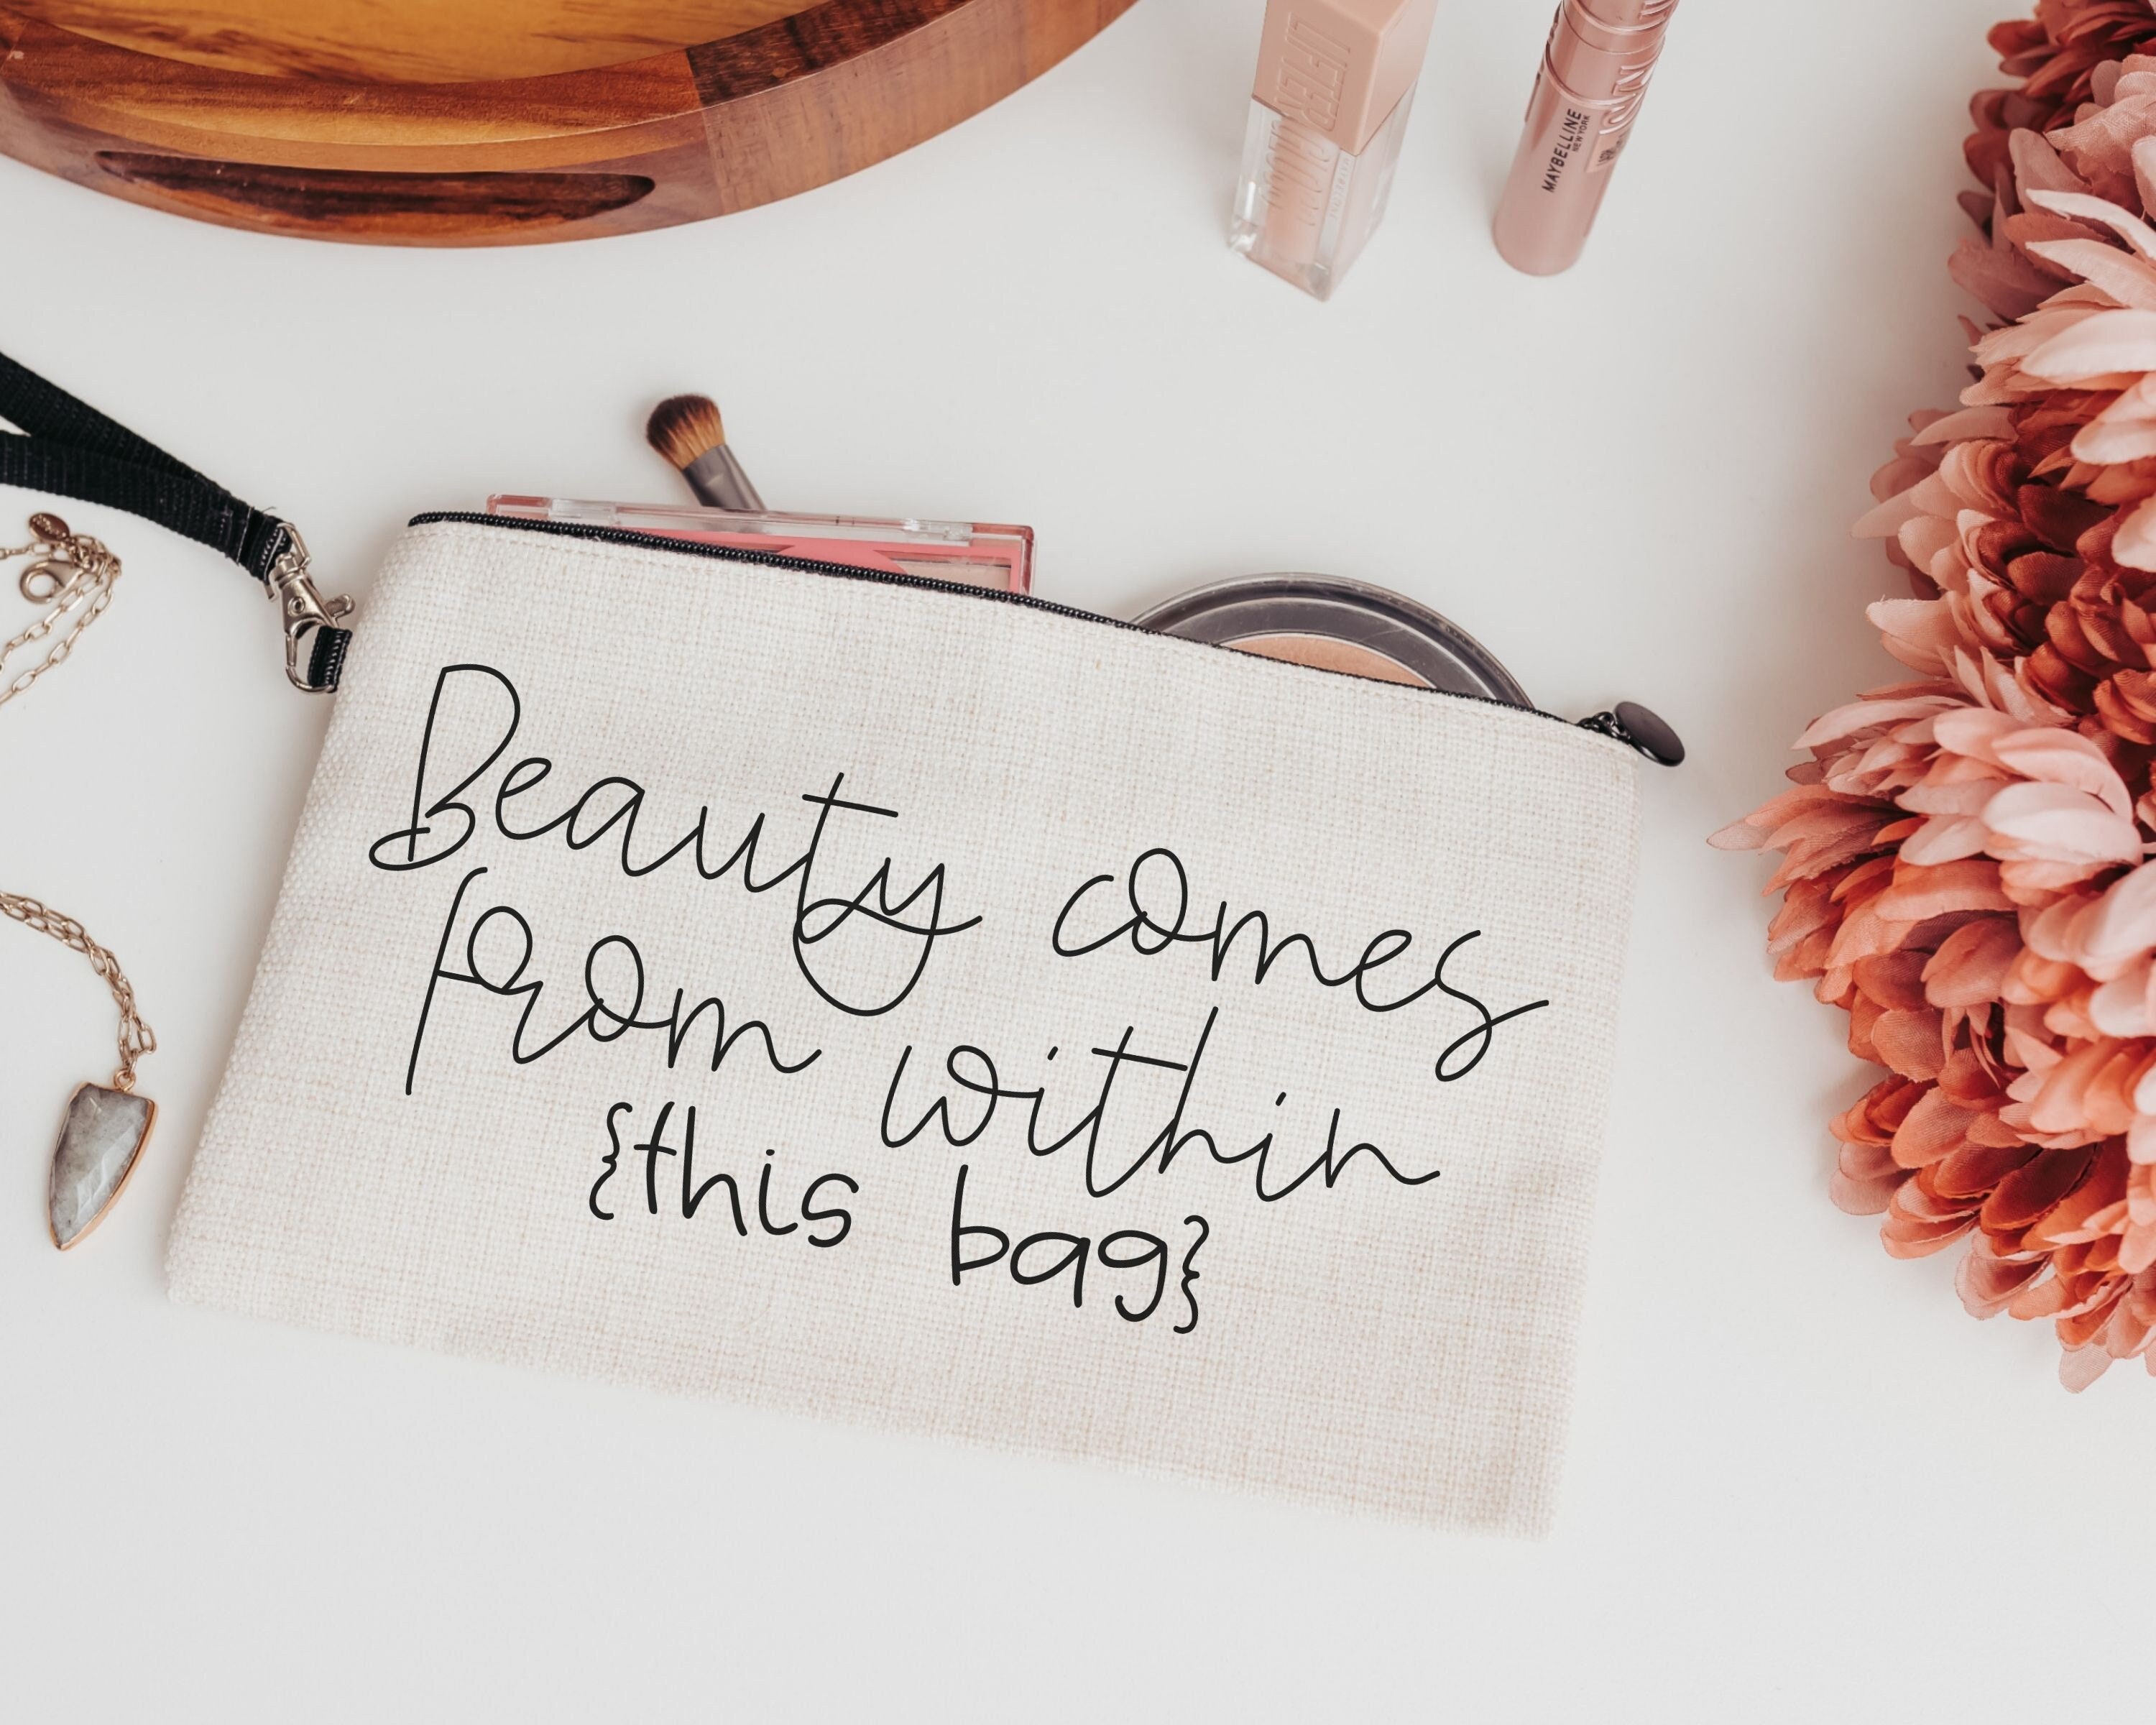 LIFTER
MAYBELLINE
NEW YORK
Beauty comes
from within
{this bag}